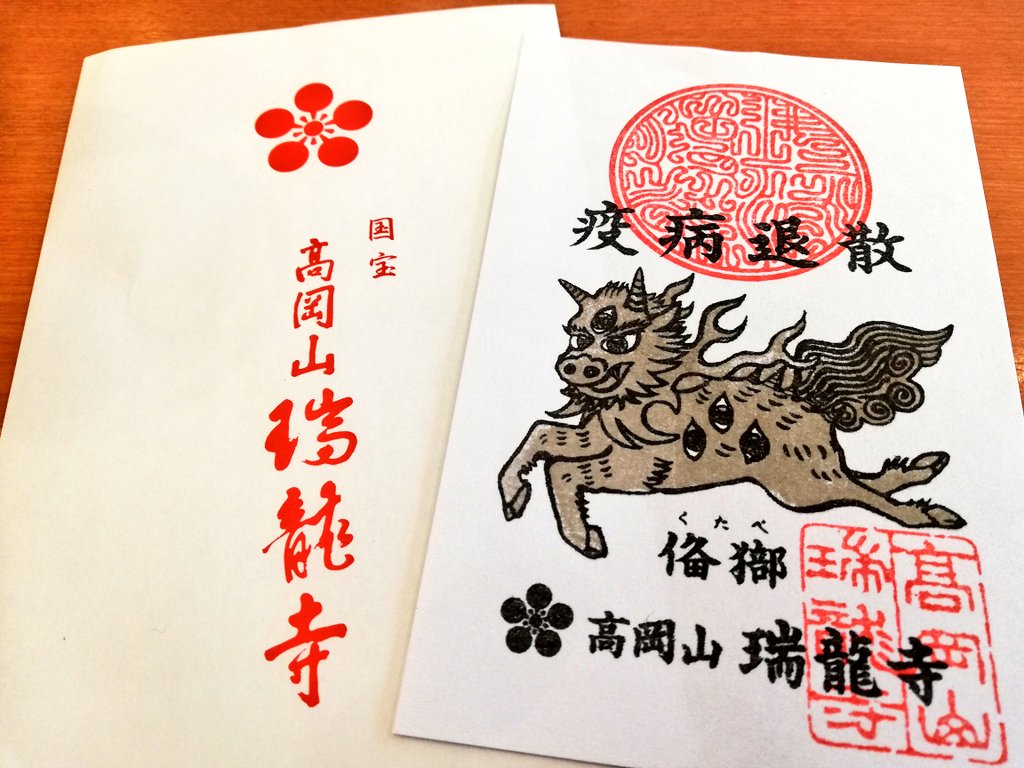 国宝
高岡山瑞龍寺
疫病退散
くたべ
高岡山 瑞龍寺
高岡山
瑞龍寺